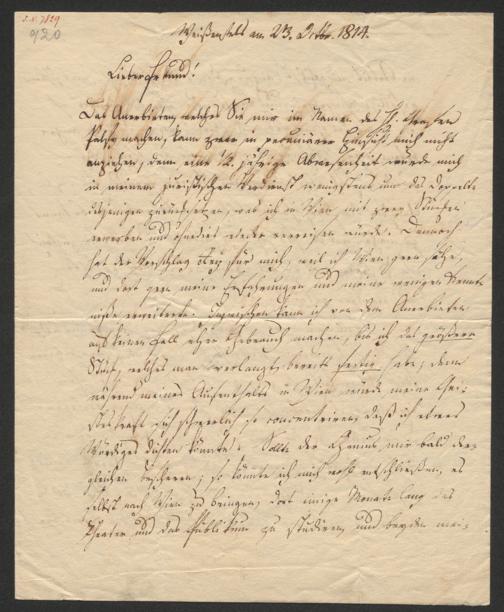 I.N. 7829
920
Weißenfels am 23. Octbr. 1814.
Lieber Freund!
Das Anerbieten, welches Sie mir im Namen des H. Grafen
Palffy machen, kann zwar in pecuniärer Hinsicht mich nicht
anziehen, denn eine ½ jährige Abwesenheit würde mich
in meinem juristischen Verdienst wenigstens um das Doppelte
desjenigen zurücksetzen, was ich in Wien mit zwey Stücken
erwerben und ohnedies wieder verreisen würde. Dennoch
hat der Vorschlag Reiz für mich, weil ich Wien gern sähe,
und dort gern meine Erfahrungen und meine wenigen Kennt-
nisse erweiterte. Inzwischen kann ich von dem Anerbieten
auf keinen Fall eher Gebrauch machen, bis ich das größere
Stück, welches man verlangt, bereits fertig habe; denn
während meines Aufenthalts in Wien würde meine Gei-
steskraft sich schwerlich so concentriren, daß ich etwas
Würdiges dichten könnte. Sollte der Genius mir bald der-
gleichen bescheren; so könnte ich mich wohl entschließen, es
selbst nach Wien zu bringen, dort einige Monate lang das
Theater und das Publikum zu studiren, und bey den mei-